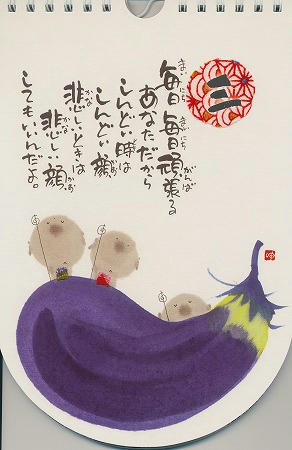 三
毎日毎日頑張る
あなただから
しんどい時は
しんどい顔
悲しいときは
悲しい顔
してもいいんだよ。